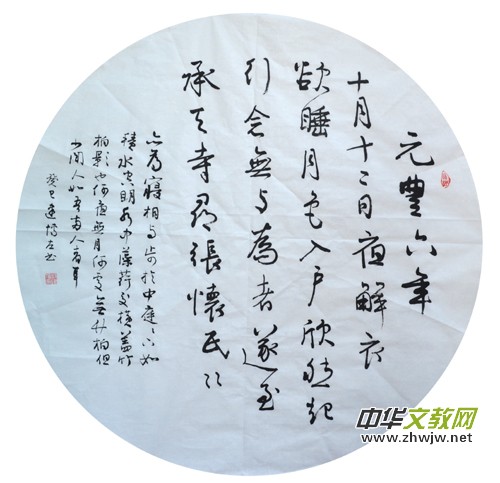 元豐六年
十月十二日夜解衣
欲睡月色入户欣然起
行念無与為者遂至
承天寺尋張懷民々
亦為寢相与步於中庭々下如
積水空明水中藻荇交橫蓋竹
柏影也何夜無月何處無竹柏但
少閑人如吾兩人者耳
癸巳 书
中华文教网
www.zhwjw.net